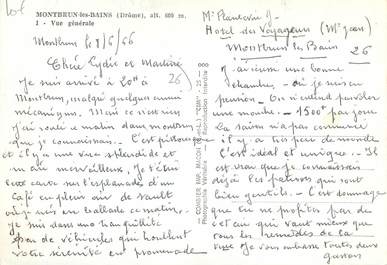 MONTBRUN-les-BAINS (Drôme), alt. 600 m.
1 - Vue générale
Montbrun le 8/6/66
Chère Lydie et Martine
Je suis arrivé à 20H à
Montbrun, malgré quelques ennuis
mécaniques. Mais ce
j'ai rodé ce matin dans montbrun
que je connaissais. C'est pittoresque
et il y a une vue splendide et
un air merveilleux. Je t'écris
cette carte sur l'esplanade d'un
café en plein air de Sault
où je suis en ballade ce matin.
Je suis dans une tranquillité
pas de véhicules qui troublent
votre sérénité en promenade
COMBIER IMP. MACON (S.-et-L.) "CIM"
Photographie Véritable - Reproduction Interdite
Mr
Hotel des Voyageurs (Mr Jean)
Montbrun les Bains
26
J'ai une bonne
chambre, où je suis en
pension. On n'entend pas voler
une mouche. 1500F par jour
La saison n'a pas commencé
il y a très peu de monde.
C'est idéal et unique. Il
est vrai que je connaissais
déjà les patrons qui sont
bien gentils. C'est dommage
que tu ne profites pas de
cet air qui vaut mieux que
tous les remèdes de la
Je vous embrasse toutes deux
Gaston